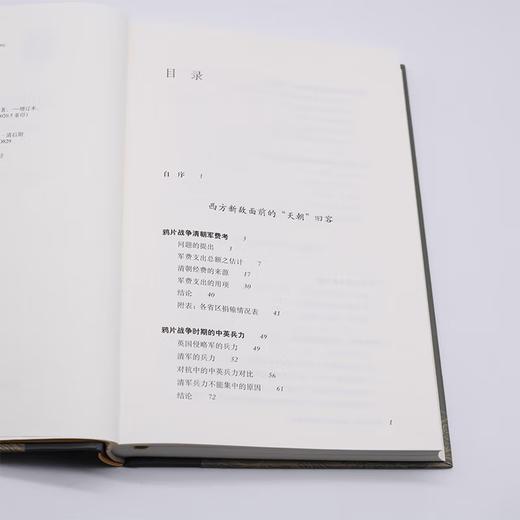 著. —增订本.
2020.5重印)
·清后期
0829
目 录
自 序 1
西方新敌面前的“天朝”旧容
鸦片战争清朝军费考 3
问题的提出 3
军费支出总额之估计 7
清朝经费的来源 17
军费支出的用项 30
结论 40
附表：各省区捐输情况表 41
鸦片战争时期的中英兵力 49
英国侵略军的兵力 49
清军的兵力 52
对抗中的中英兵力对比 56
清军兵力不能集中的原因 61
结论 72
1